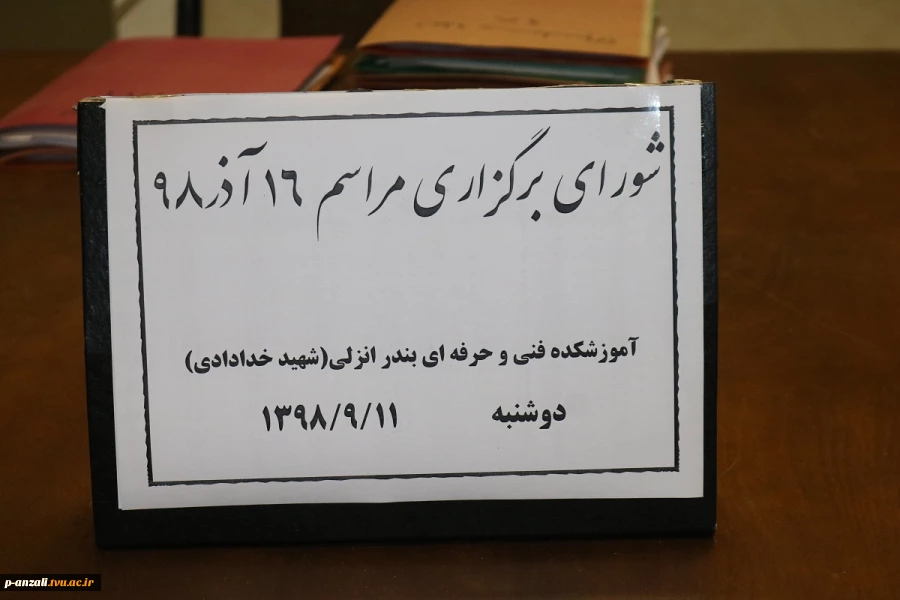 شورای برگزاری مراسم ١٦ آذر٩٨
آموزشکده فنی و حرفه ای بندر انزلی(شهید خدادادی)
دوشنبه ١٣٩٨/٩/١١
p-anzali.tvu.ac.ir